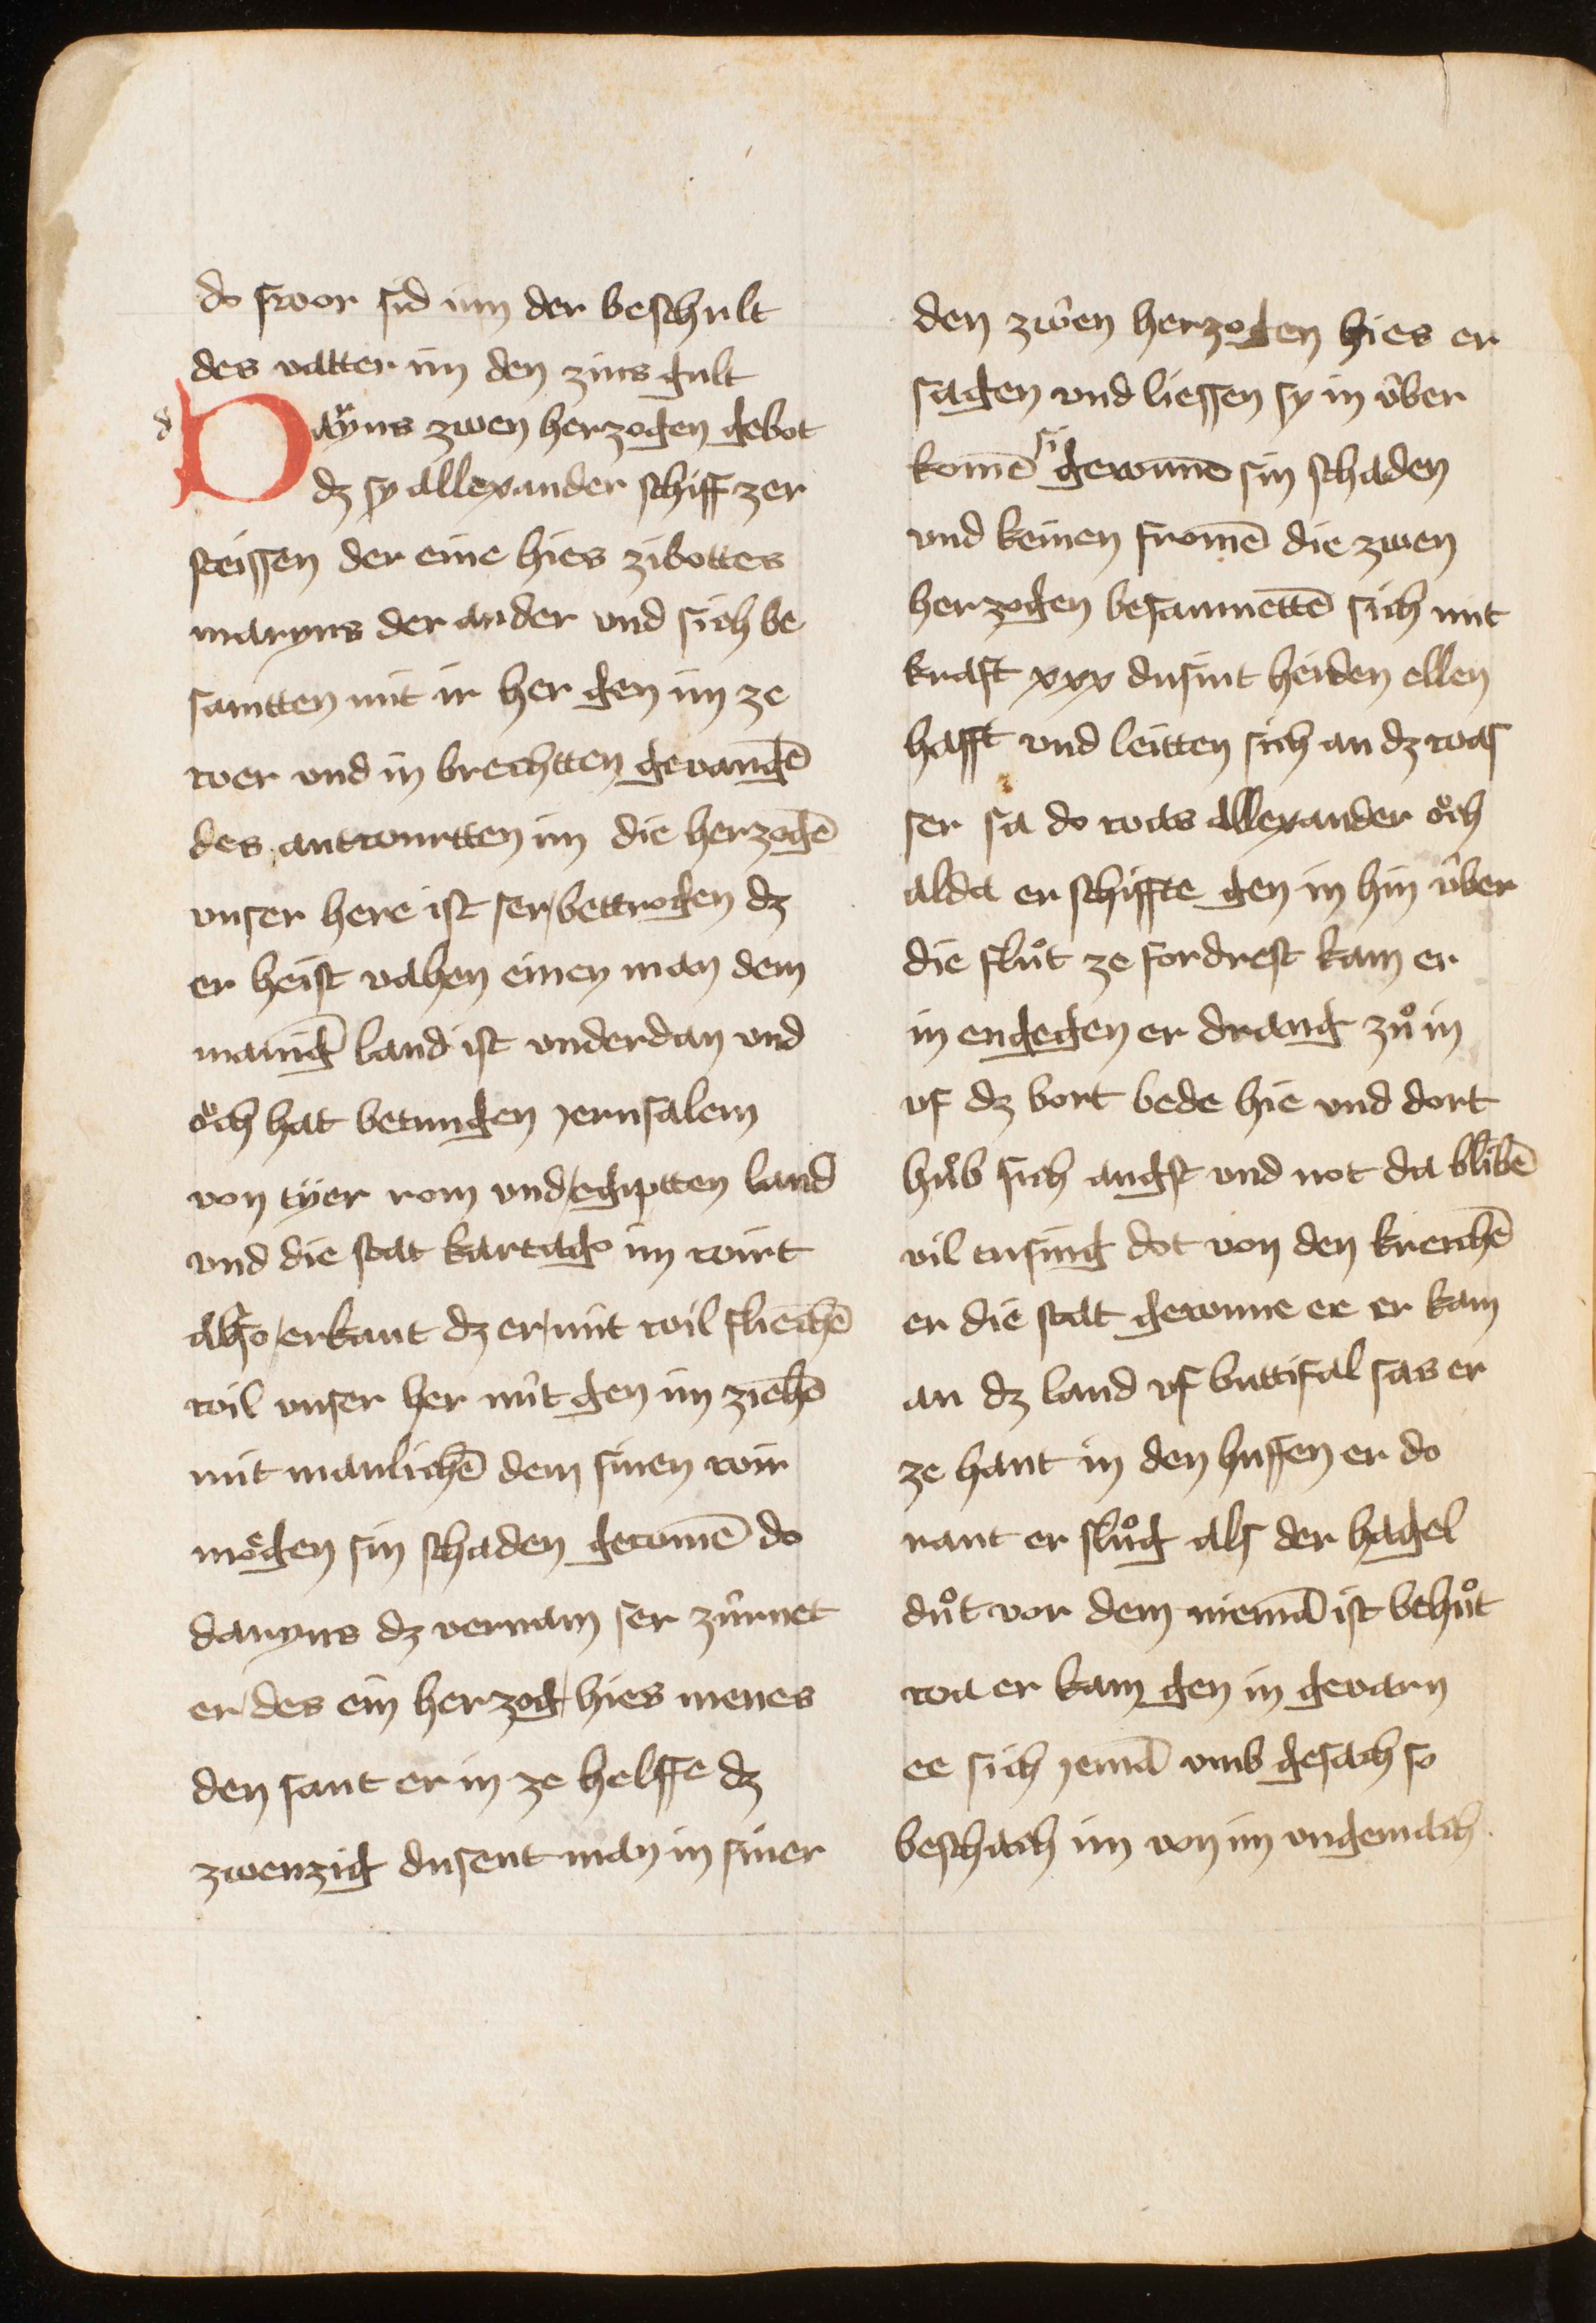 do swor sid im der beschult
des vatter im den zins gult
d
Daryus zwen herzogen gebot
dz sy allexander schiff zer
steissen der eine hies zibottes
maryus der ander vnd sich be
samtten mit ir her gen im ze
wer vnd in brechtten gevangē
des antwurtten im die herzogē
vnser here ist ser bettrogen dz
er heist vahen einen man dem
mānig land ist vnderdan vnd
öch hat betungen jerusalem
von tÿer rom vnd egiptten land
vnd die stat kartago im wirt
also erkant dz er nit wil fliechē
wil vnser her nût gen im ziehē
mit manlichē dem sinen wir
mögen sin schaden gewinnē do
daryus dz vernam ser zûrnet
er des ein herzog hies menes
den sant er in ze helffe dz
zwenzig dusent man in siner
den zwên herzogen hies er
sagen vnd liessen sy in ûber
komē si gewunnē sin schaden
vnd keinen fromē die zwen
herzogen besammettē sich mit
kraft xxx dusint heiden ellen
hafft vnd leitten sich an dz was
ser sa do was allexander öch
alda er schiffte gen in hin ûber
die flůt ze fordrest kam er
in engegen er drang zů in
vf dz bort bede hie vnd dort
hůb sich angst vnd not da blibē
vil tusing dot von den kriechē
er die stat gewunne ee er kam
an dz land vf buttifal sas er
ze hant in den huffen er do
rant er slůg als der hagel
důt vor dem niemā ist behůt
wa er kam gen in gevarn
ee sich jemā vmb gesach so
beschach im von im vngemach